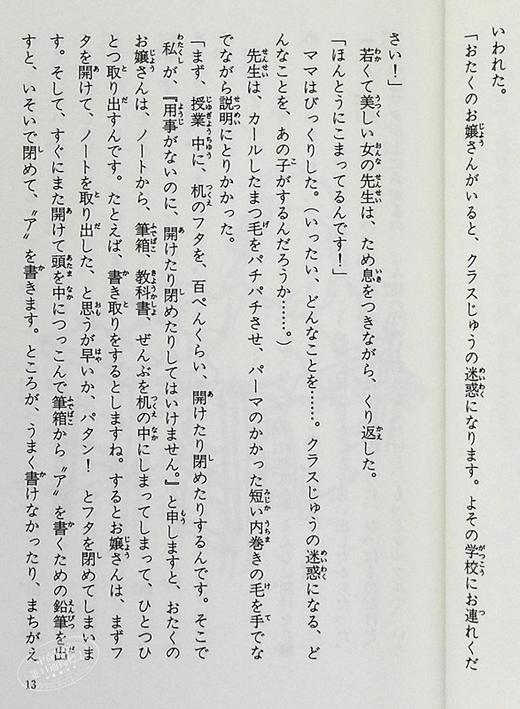 いわれた。
「おたくのお嬢さんがいると、クラスじゅうの迷惑になります。よその学校にお連れくだ
さい！」
若くて美しい女の先生は、ため息をつきながら、くり返した。
「ほんとうにこまってるんです！」
ママはびっくりした。（いったい、どんなことを……。クラスじゅうの迷惑になる、ど
んなことを、あの子がするんだろうか……。）
先生は、カールしたまつ毛をパチパチさせ、パーマのかかった短い内巻きの毛を手でな
でながら説明にとりかかった。
「まず、授業中に、机のフタを、百ぺんくらい、開けたり閉めたりするんです。そこで
私が、『用事がないのに、開けたり閉めたりしてはいけません。』と申しますと、おたくの
お嬢さんは、ノートから、筆箱、教科書、ぜんぶを机の中にしまってしまって、ひとつひ
とつ取り出すんです。たとえば、書き取りをするとしますね。するとお嬢さんは、まずフ
タを開けて、ノートを取り出した、と思うが早いか、パタン！　とフタを閉めてしまいま
す。そして、すぐにまた開けて頭を中につっこんで筆箱から〝ア〟を書くための鉛筆を出
すと、いそいで閉めて、〝ア〟を書きます。ところが、うまく書けなかったり、まちがえ
13